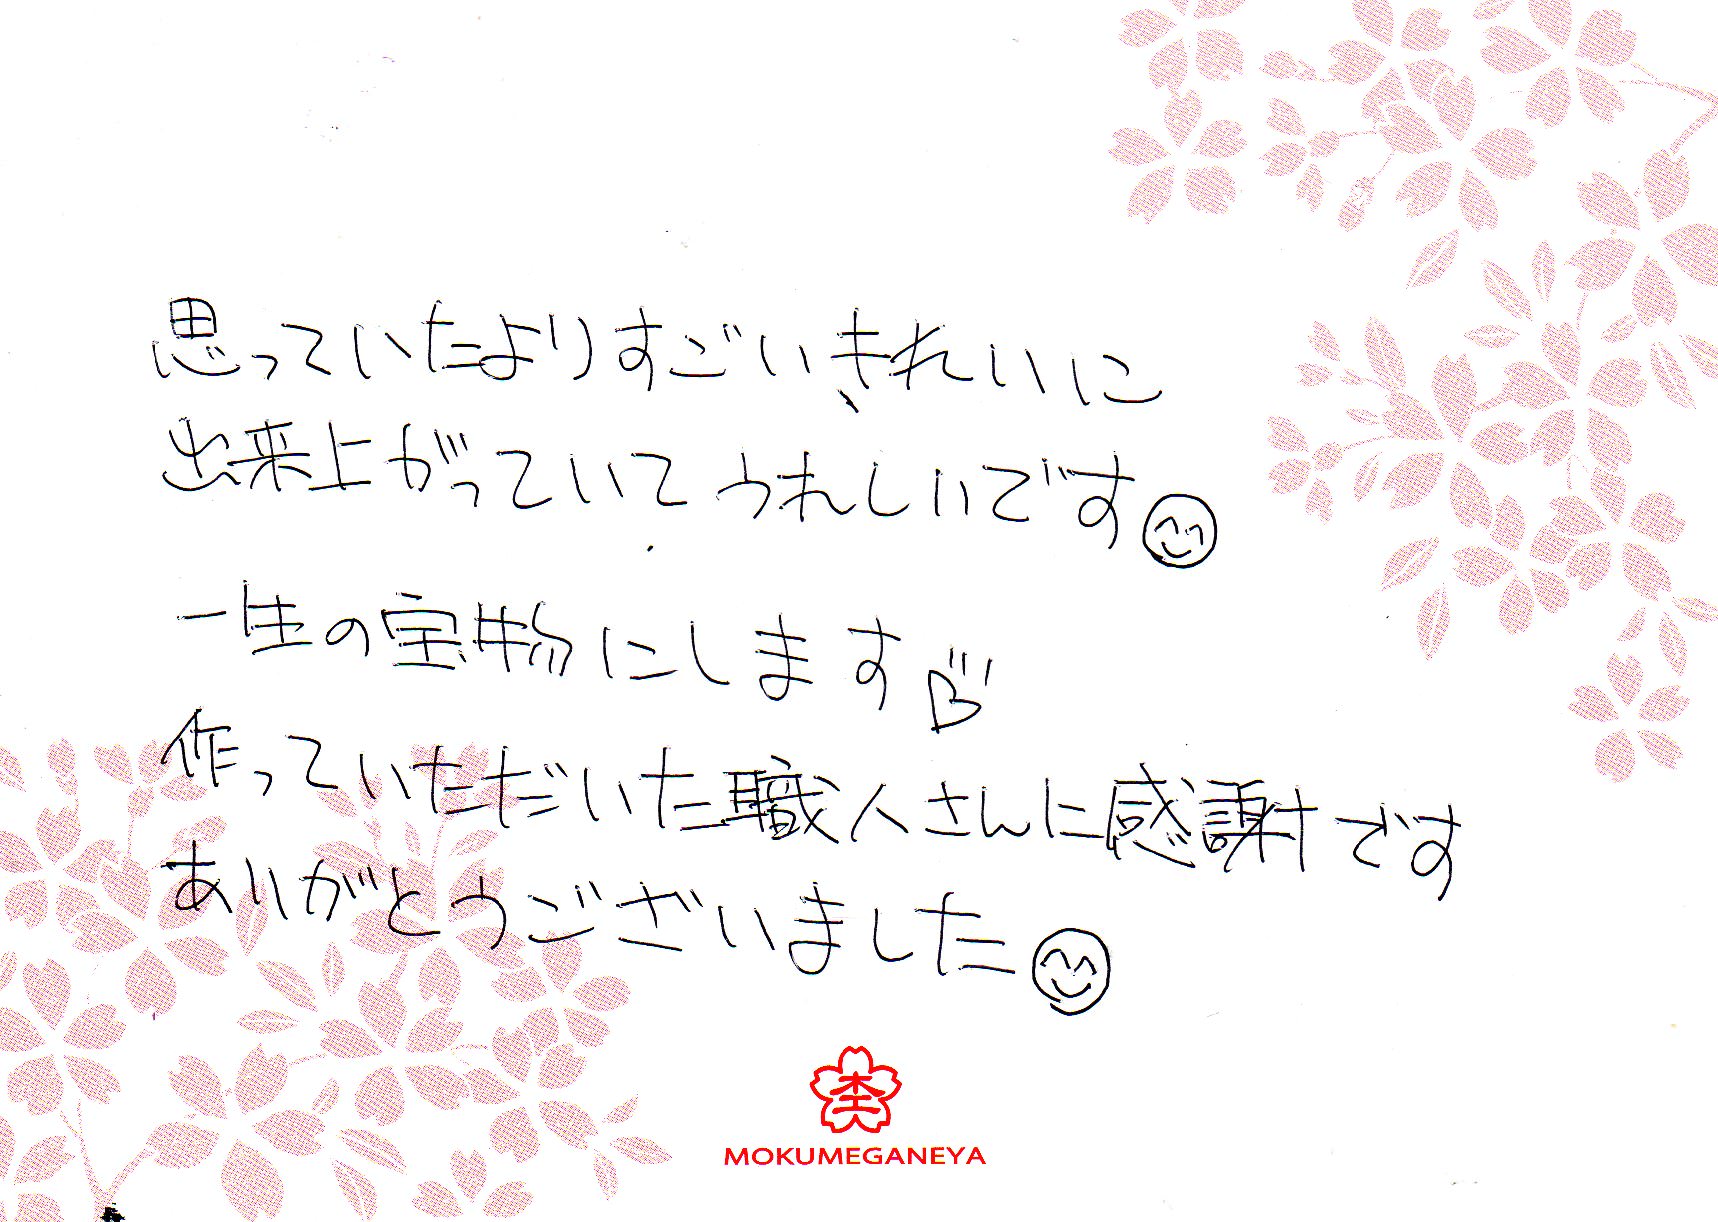 思っていたよりすごいきれいに
出来上がっていてうれしいです
一生の宝物にします
作っていただいた職人さんに感謝です
ありがとうございました
MOKUMEGANEYA